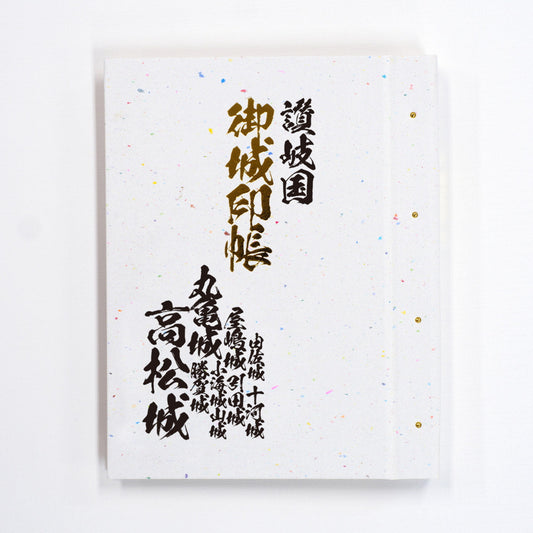 讃岐国
御城印帳
由佐城 十河城
屋嶋城 引田城
小海城山城
丸亀城 勝賀城
高松城